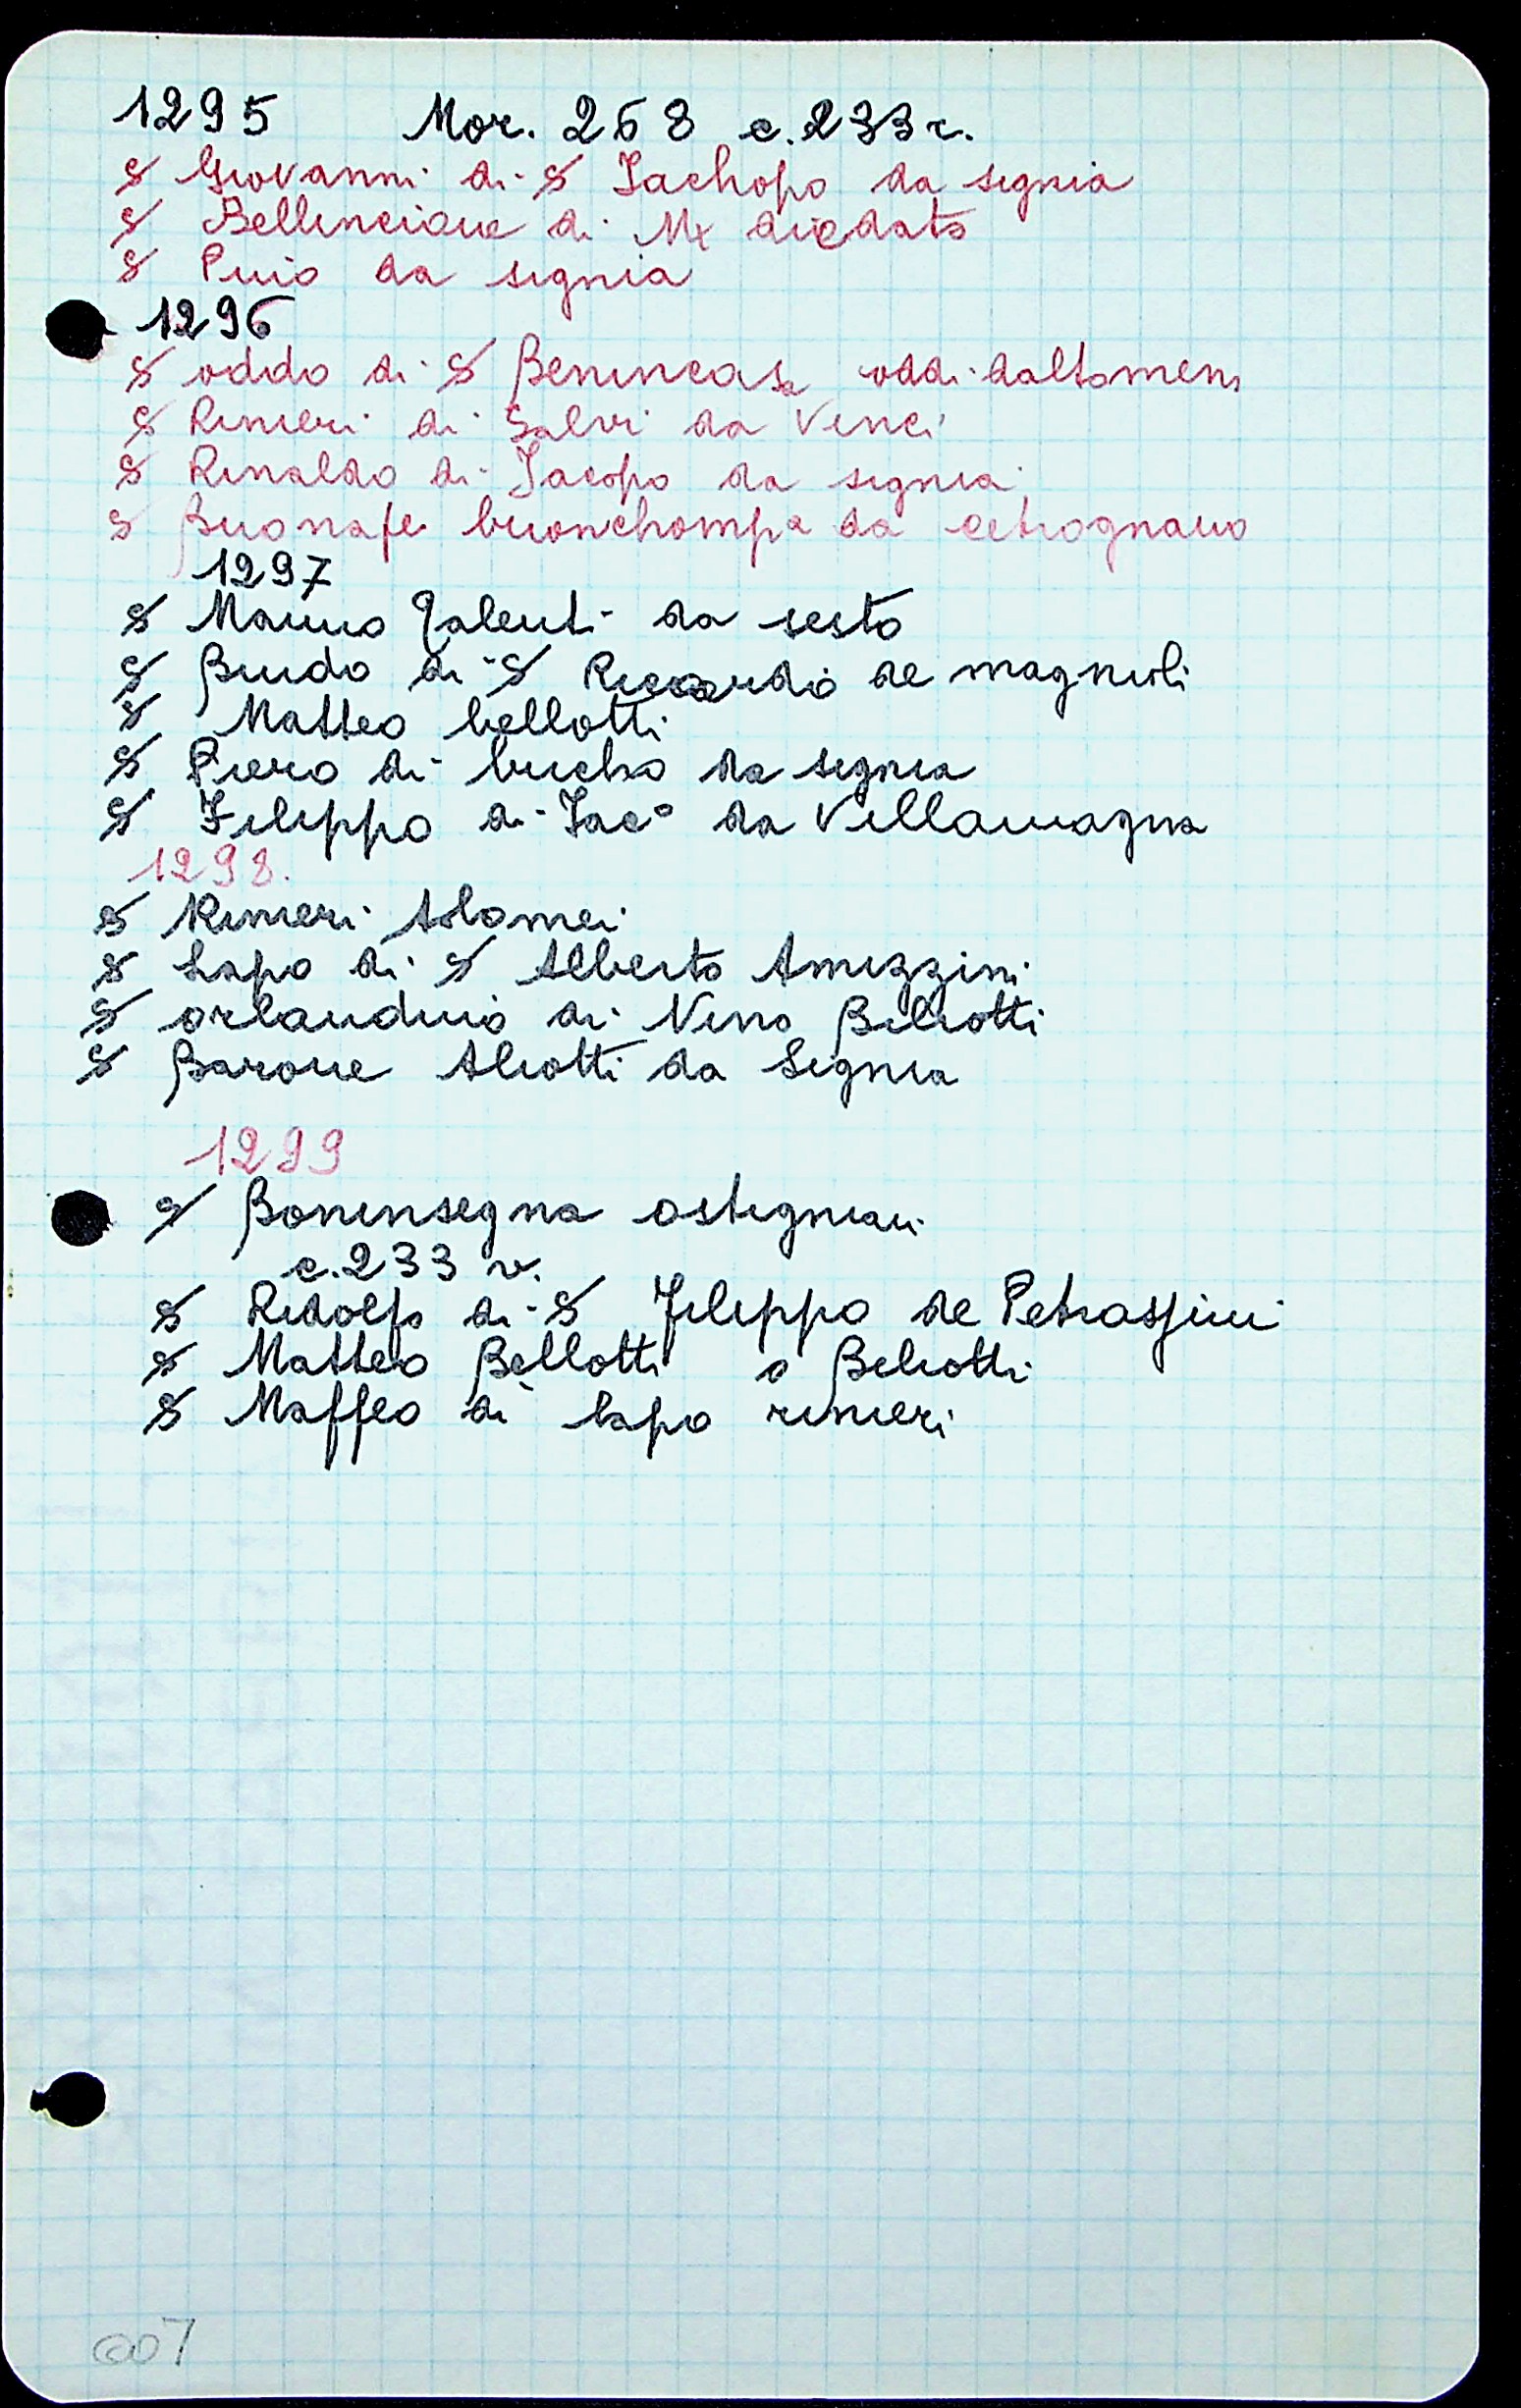 1295 Mor. 268 c. 233 r.
S Giovanni di S Jachopo da signia
S Bellincione di Mx diedato
S Puio da signia
1296
S oddo di S Benincasa oddi daltomena
S Rinieri di Salvi da Vinci
S Rinaldo di Jacopo da signia
S Buonafe buonchompa da cetrognano
1297
S Manno Galenti da sesto
S Buido di S Riccardo de magnioli
S Matteo bellotti
S Piero di brucho da signia
S Filippo di Jac° da Villamagna
1298.
S Rinieri tolomei
S Lapo di S Alberto Amizzini
S orlanduio di Nino Beliotti
S Barone Aliotti da Signia
1299
S Boninsegna ostigniani
c. 233 v.
S Ridolfo di S Filippo de Petrassini
S Matteo Bellotti o Beliotti
S Maffeo di lapo rinieri
007